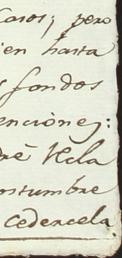 casos; pero
ien hasta
fondos
enciones:
ré
ostumbre
cedercela